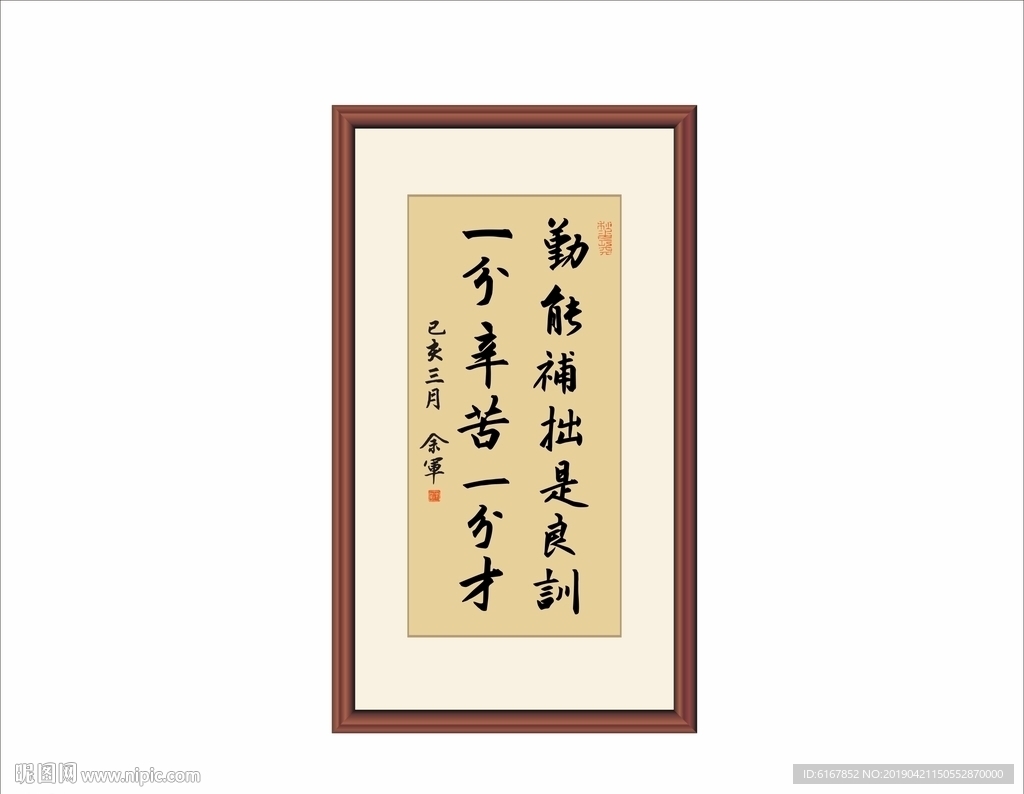 勤能補拙是良訓
一分辛苦一分才
己亥三月 余軍
昵图网 www.nipic.com
ID:6167852 NO:20190421150552870000